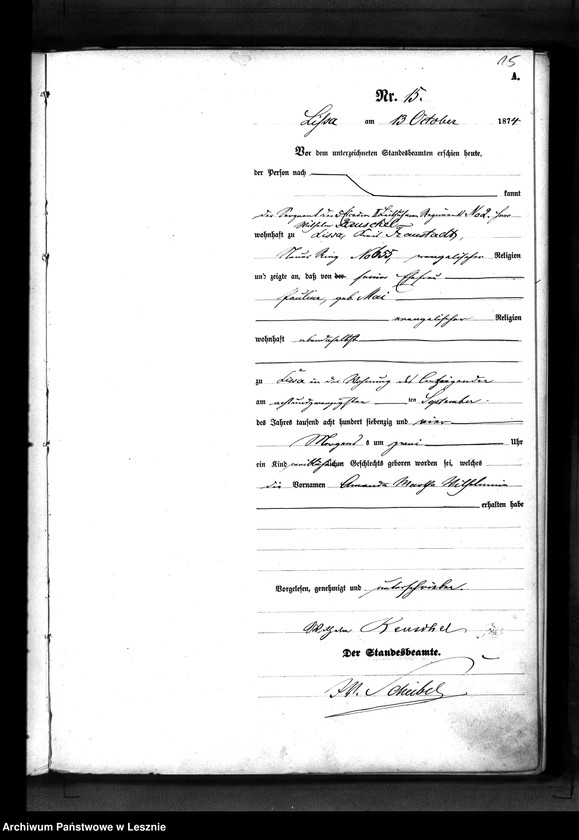 15
A.
Nr. 15.
Lissa am 13 October 1874
Vor dem unterzeichneten Standesbeamten erschien heute,
der Person nach
kannt
der Sergeant der Escadron Regiments No 2. Herr
Wilhelm
wohnhaft zu Lissa, Fraustadt,
Neuer Ring No 655, evangelischer Religion
und zeigte an, daß von der seiner Ehefrau
Pauline, geb. Mai
evangelischer Religion
wohnhaft ebendaselbst
zu Lissa in der Wohnung des Anzeigenden
am achtundzwanzigsten ten September
des Jahres tausend acht hundert siebenzig und vier
Morgens s um zwei Uhr
ein Kind weiblichen Geschlechts geboren worden sei, welches
die Vornamen Amanda Martha Wilhelmine
erhalten habe
Vorgelesen, genehmigt und unterschrieben.
Wilhelm
Der Standesbeamte.
Archiwum Państwowe w Lesznie